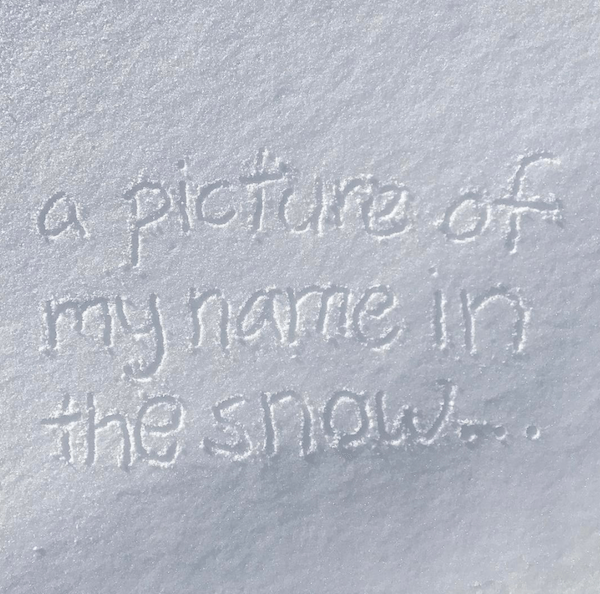 a picture of
my name in
the snow...